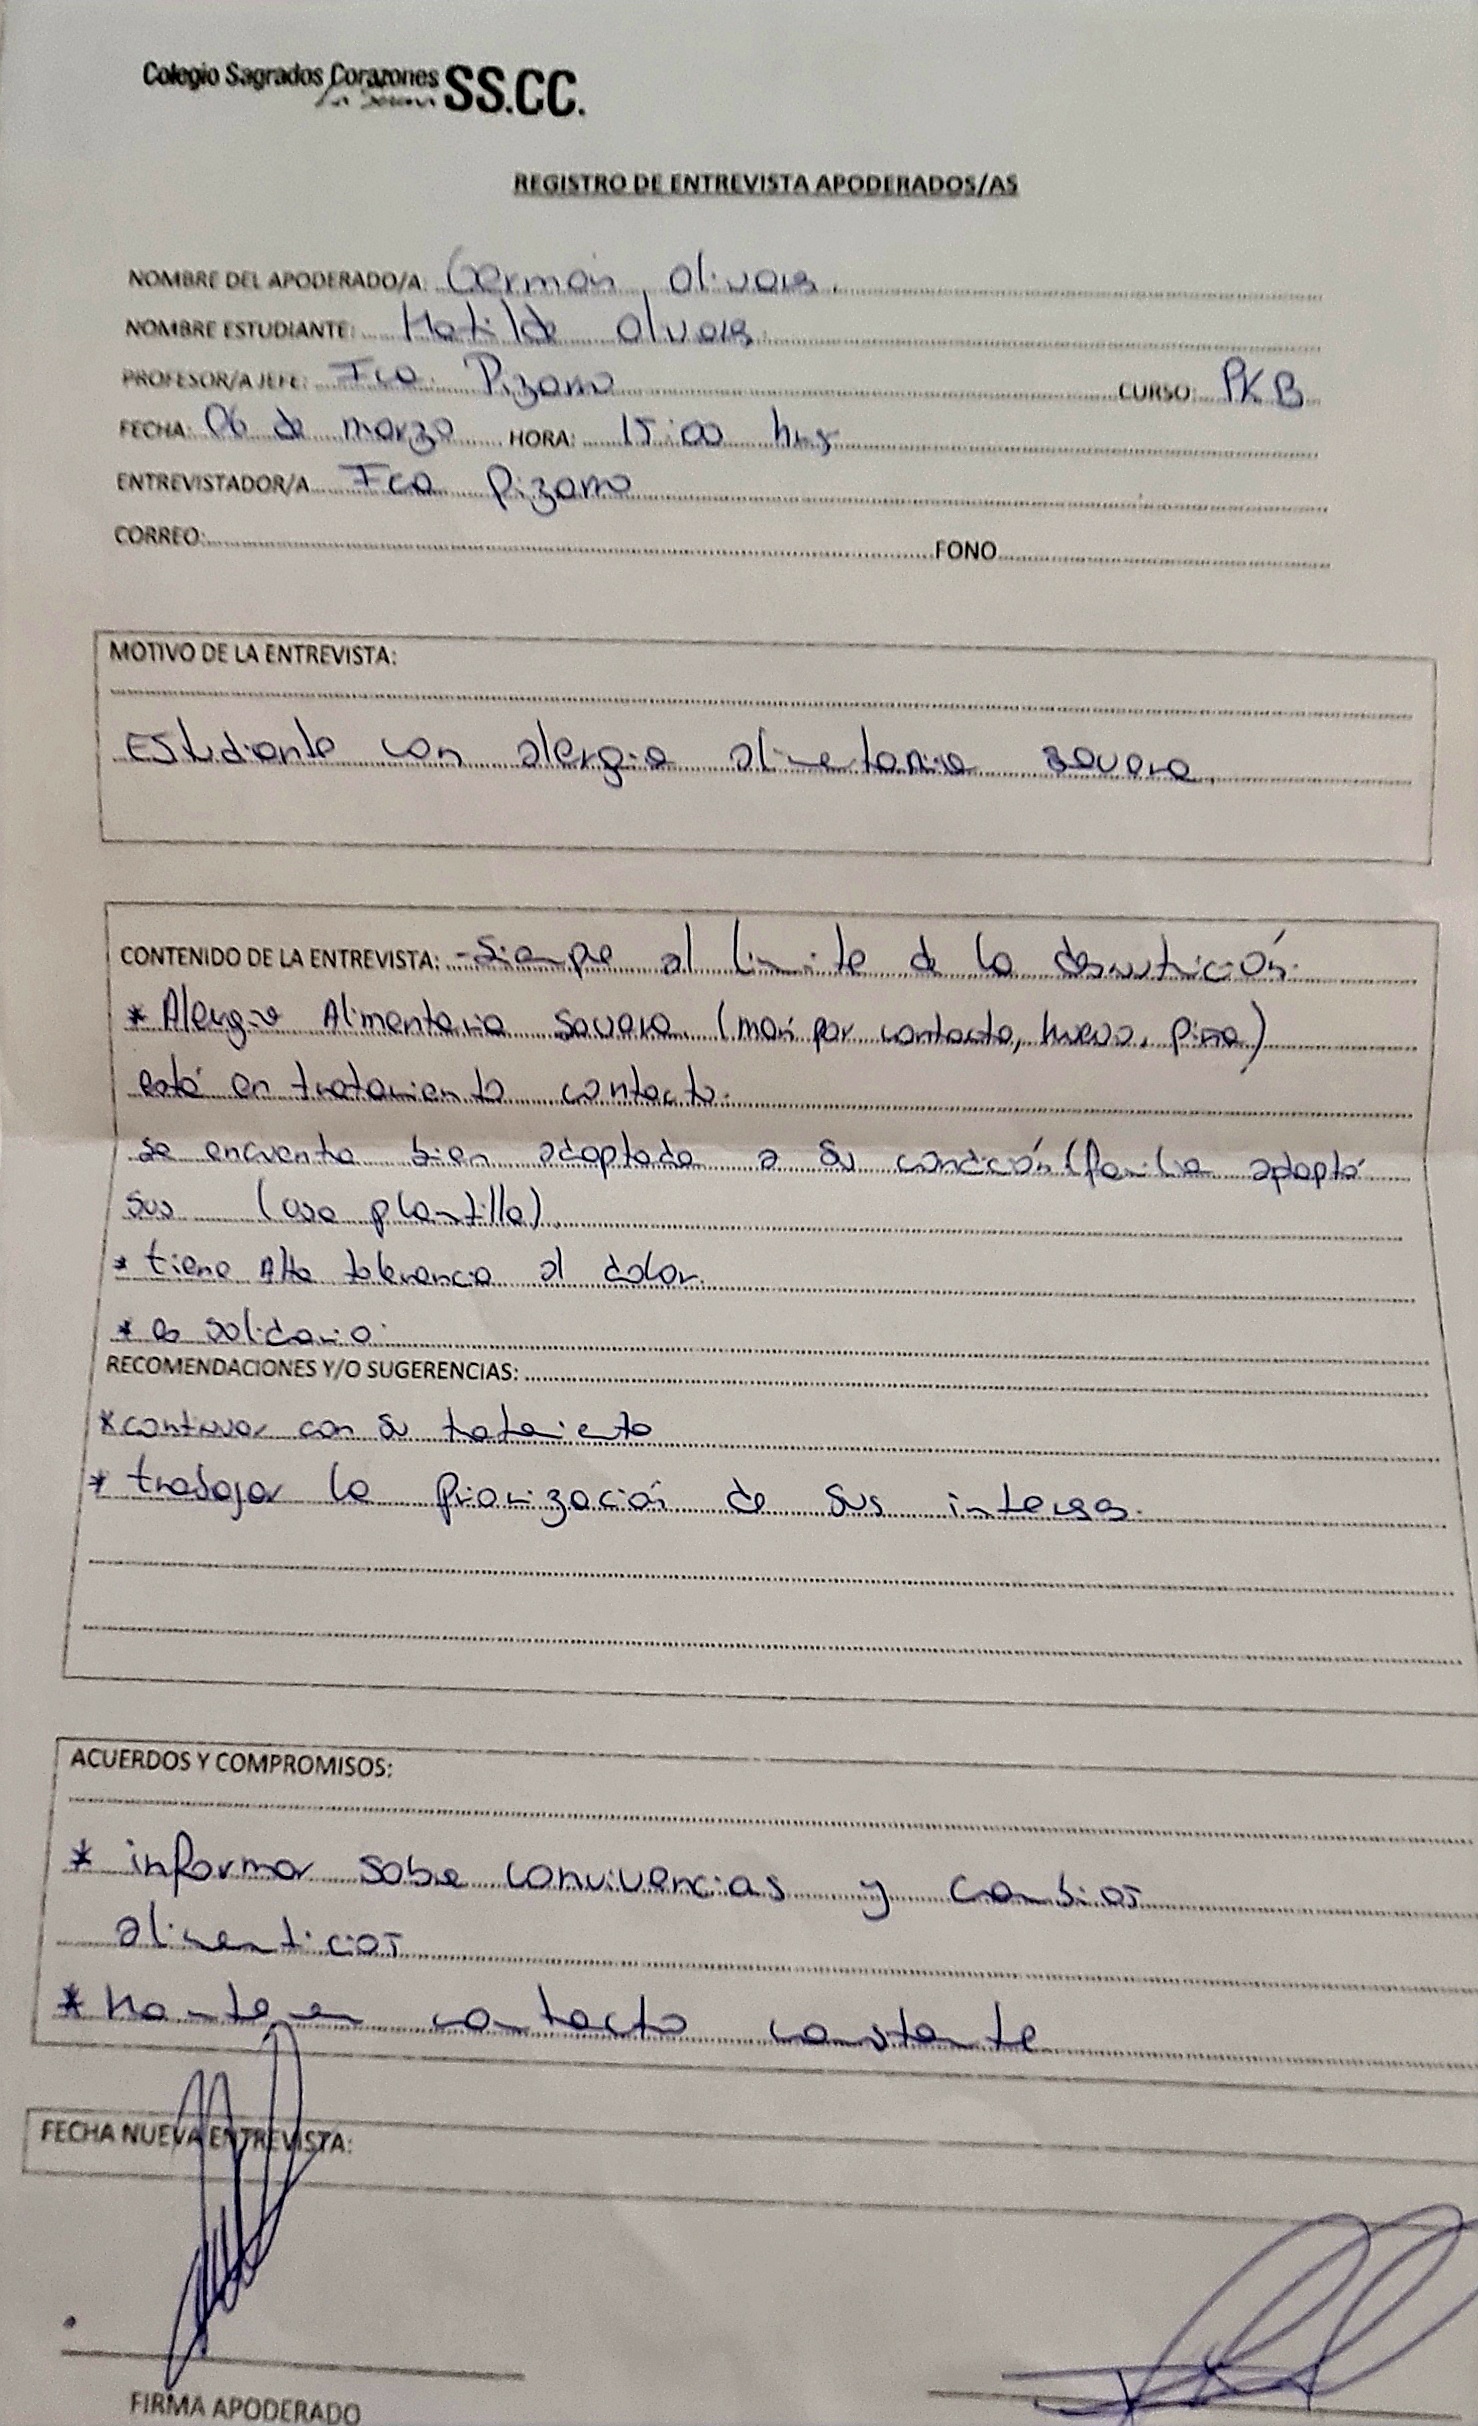 Colegio Sagrados Corazones SS.CC.
La Serena
REGISTRO DE ENTREVISTA APODERADOS/AS
NOMBRE DEL APODERADO/A: Germán Olivares.
NOMBRE ESTUDIANTE: Matilde Olivares
PROFESOR/A JEFE: Fca. Pizarro CURSO: PKB
FECHA: 06 de marzo HORA: 15:00 hrs
ENTREVISTADOR/A Fca Pizarro
CORREO: FONO
MOTIVO DE LA ENTREVISTA:
Estudiante con alergia alimentaria severa.
CONTENIDO DE LA ENTREVISTA: - Siempre al límite de la desnutrición.
* Alergia Alimentaria severa (maní por contacto, huevo, piña)
está en tratamiento contacto.
se encuentra bien adaptada a su condición (familia adaptó
sus (usa plantilla)
* tiene Alta tolerancia al dolor.
* es solidaria.
RECOMENDACIONES Y/O SUGERENCIAS:
* continuar con su tratamiento
* trabajar la priorización de sus intereses.
ACUERDOS Y COMPROMISOS:
* informar sobre convivencias y cambios
alimenticios
* Mantener contacto constante
FECHA NUEVA ENTREVISTA:
FIRMA APODERADO